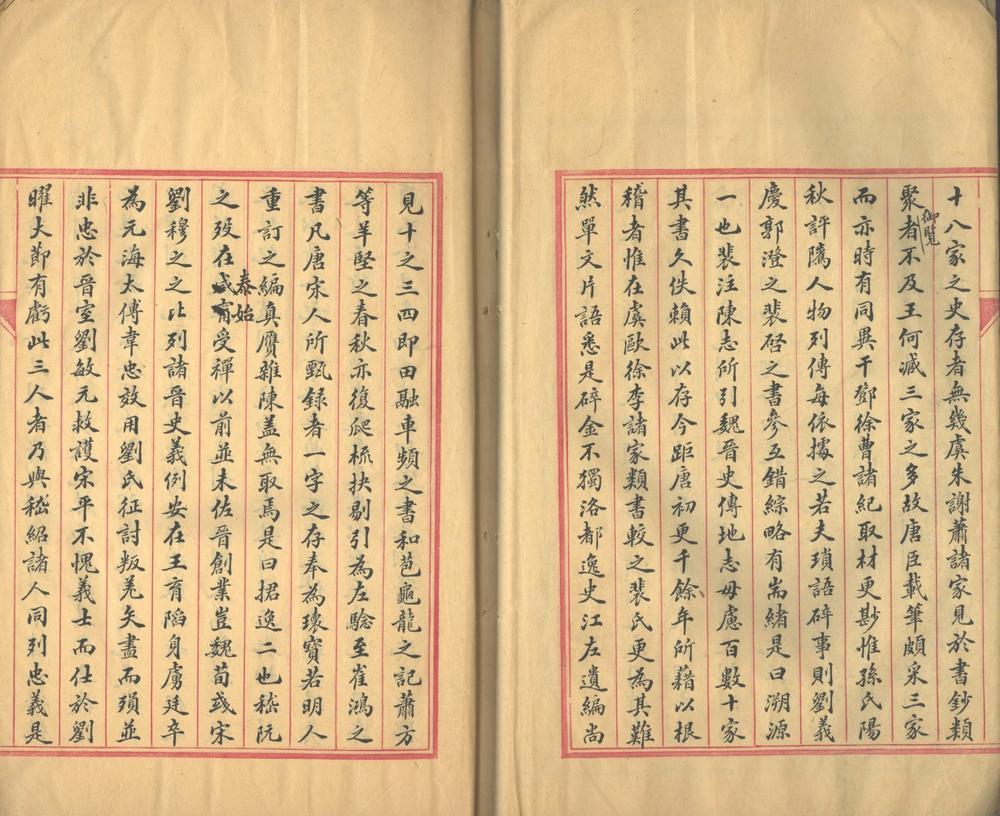 十八家之史存者無幾虞朱謝蕭諸家見於書鈔類
聚御覽者不及王何減三家之多故唐臣載筆頗采三家
而亦時有同異干鄧徐曹諸紀取材更尠惟孫氏陽
秋評隲人物列傳每依據之若夫瑣語碎事則劉義
慶郭澄之裴啓之書參互錯綜略有耑緒是曰溯源
一也裴注陳志所引魏晉史傳地志毋慮百數十家
其書久佚賴此以存今距唐初更千餘年所藉以根
稽者惟在虞歐徐李諸家類書較之裴氏更為其難
然單文片語悉是碎金不獨洛都逸史江左遺編尚
見十之三四即田融車頻之書和苞龜龍之記蕭方
等羊堅之春秋亦復爬梳抉剔引為左驗至崔鴻之
書凡唐宋人所甄錄者一字之存奉為瓌寶若明人
重訂之編真贋雜陳蓋無取焉是曰捃逸二也嵇阮
之歿在咸甯泰始受禪以前並未佐晉創業豈魏荀彧宋
劉穆之之比列諸晉史義例安在王育䧟身虜廷卒
為元海太傅韋忠效用劉氏征討叛羌矢盡而殞並
非忠於晉室劉敏元救護宋平不愧義士而仕於劉
曜大節有虧此三人者乃與嵇紹諸人同列忠義是